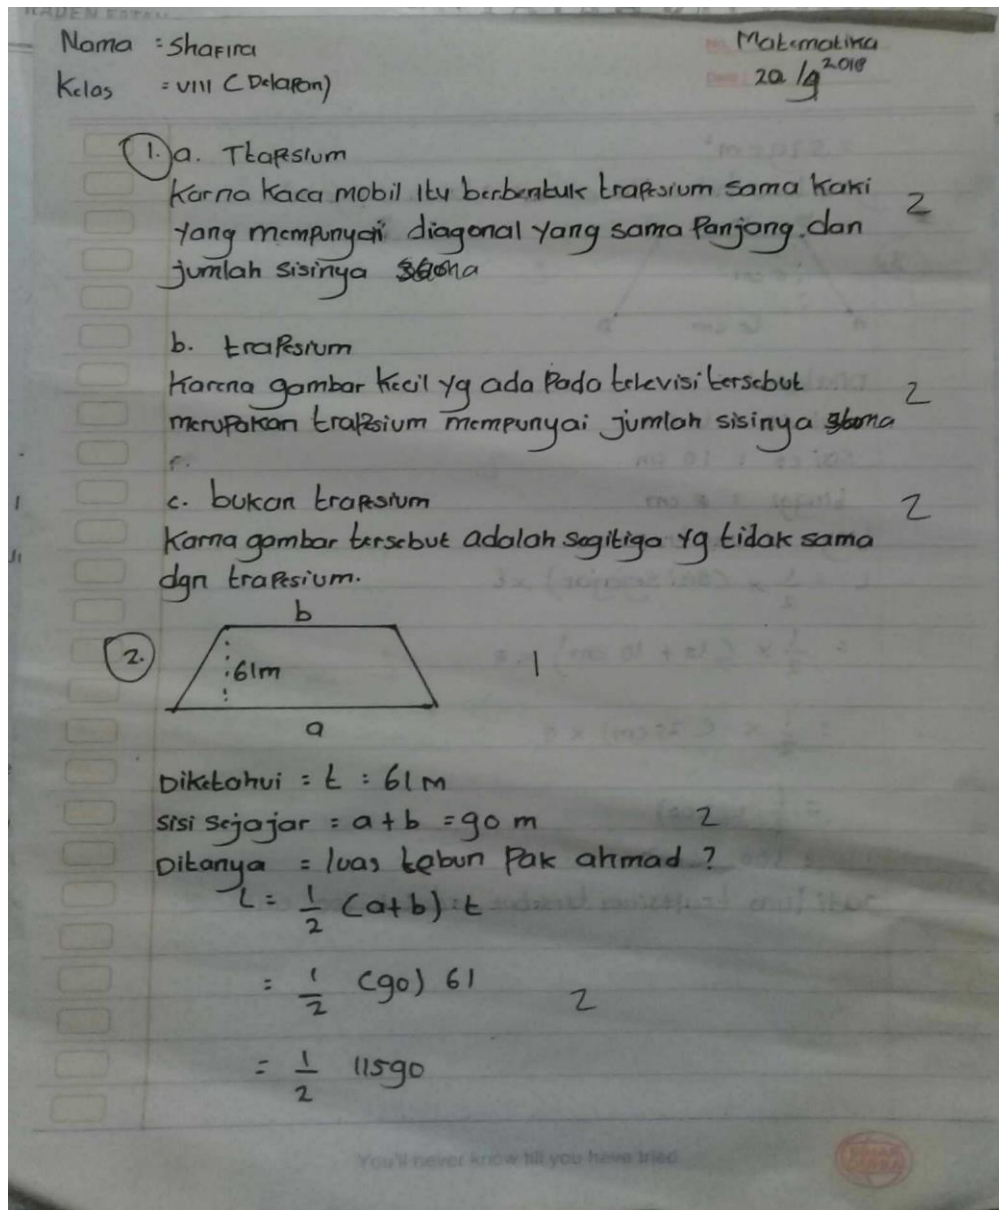 Nama : Shafira
Matematika
Kelas : VIII (Delapan)
20/9 2018
1. a. Trapesium
Karna kaca mobil itu berbentuk trapesium sama kaki
yang mempunyai diagonal yang sama panjang. dan
2
jumlah sisinya
b. trapesium
Karena gambar kecil yg ada pada televisi tersebut
2
merupakan trapesium mempunyai jumlah sisinya
c. bukan trapesium
2
Karna gambar tersebut adalah segitiga yg tidak sama
dgn trapesium.
b
2.
61m
1
a
Diketahui = t : 61 m
Sisi Sejajar : a + b = 90 m
2
Ditanya = luas kebun Pak ahmad ?
L = 1/2 (a+b) t
= 1/2 (90) 61
2
= 1/2 11590
You'll never know till you have tried